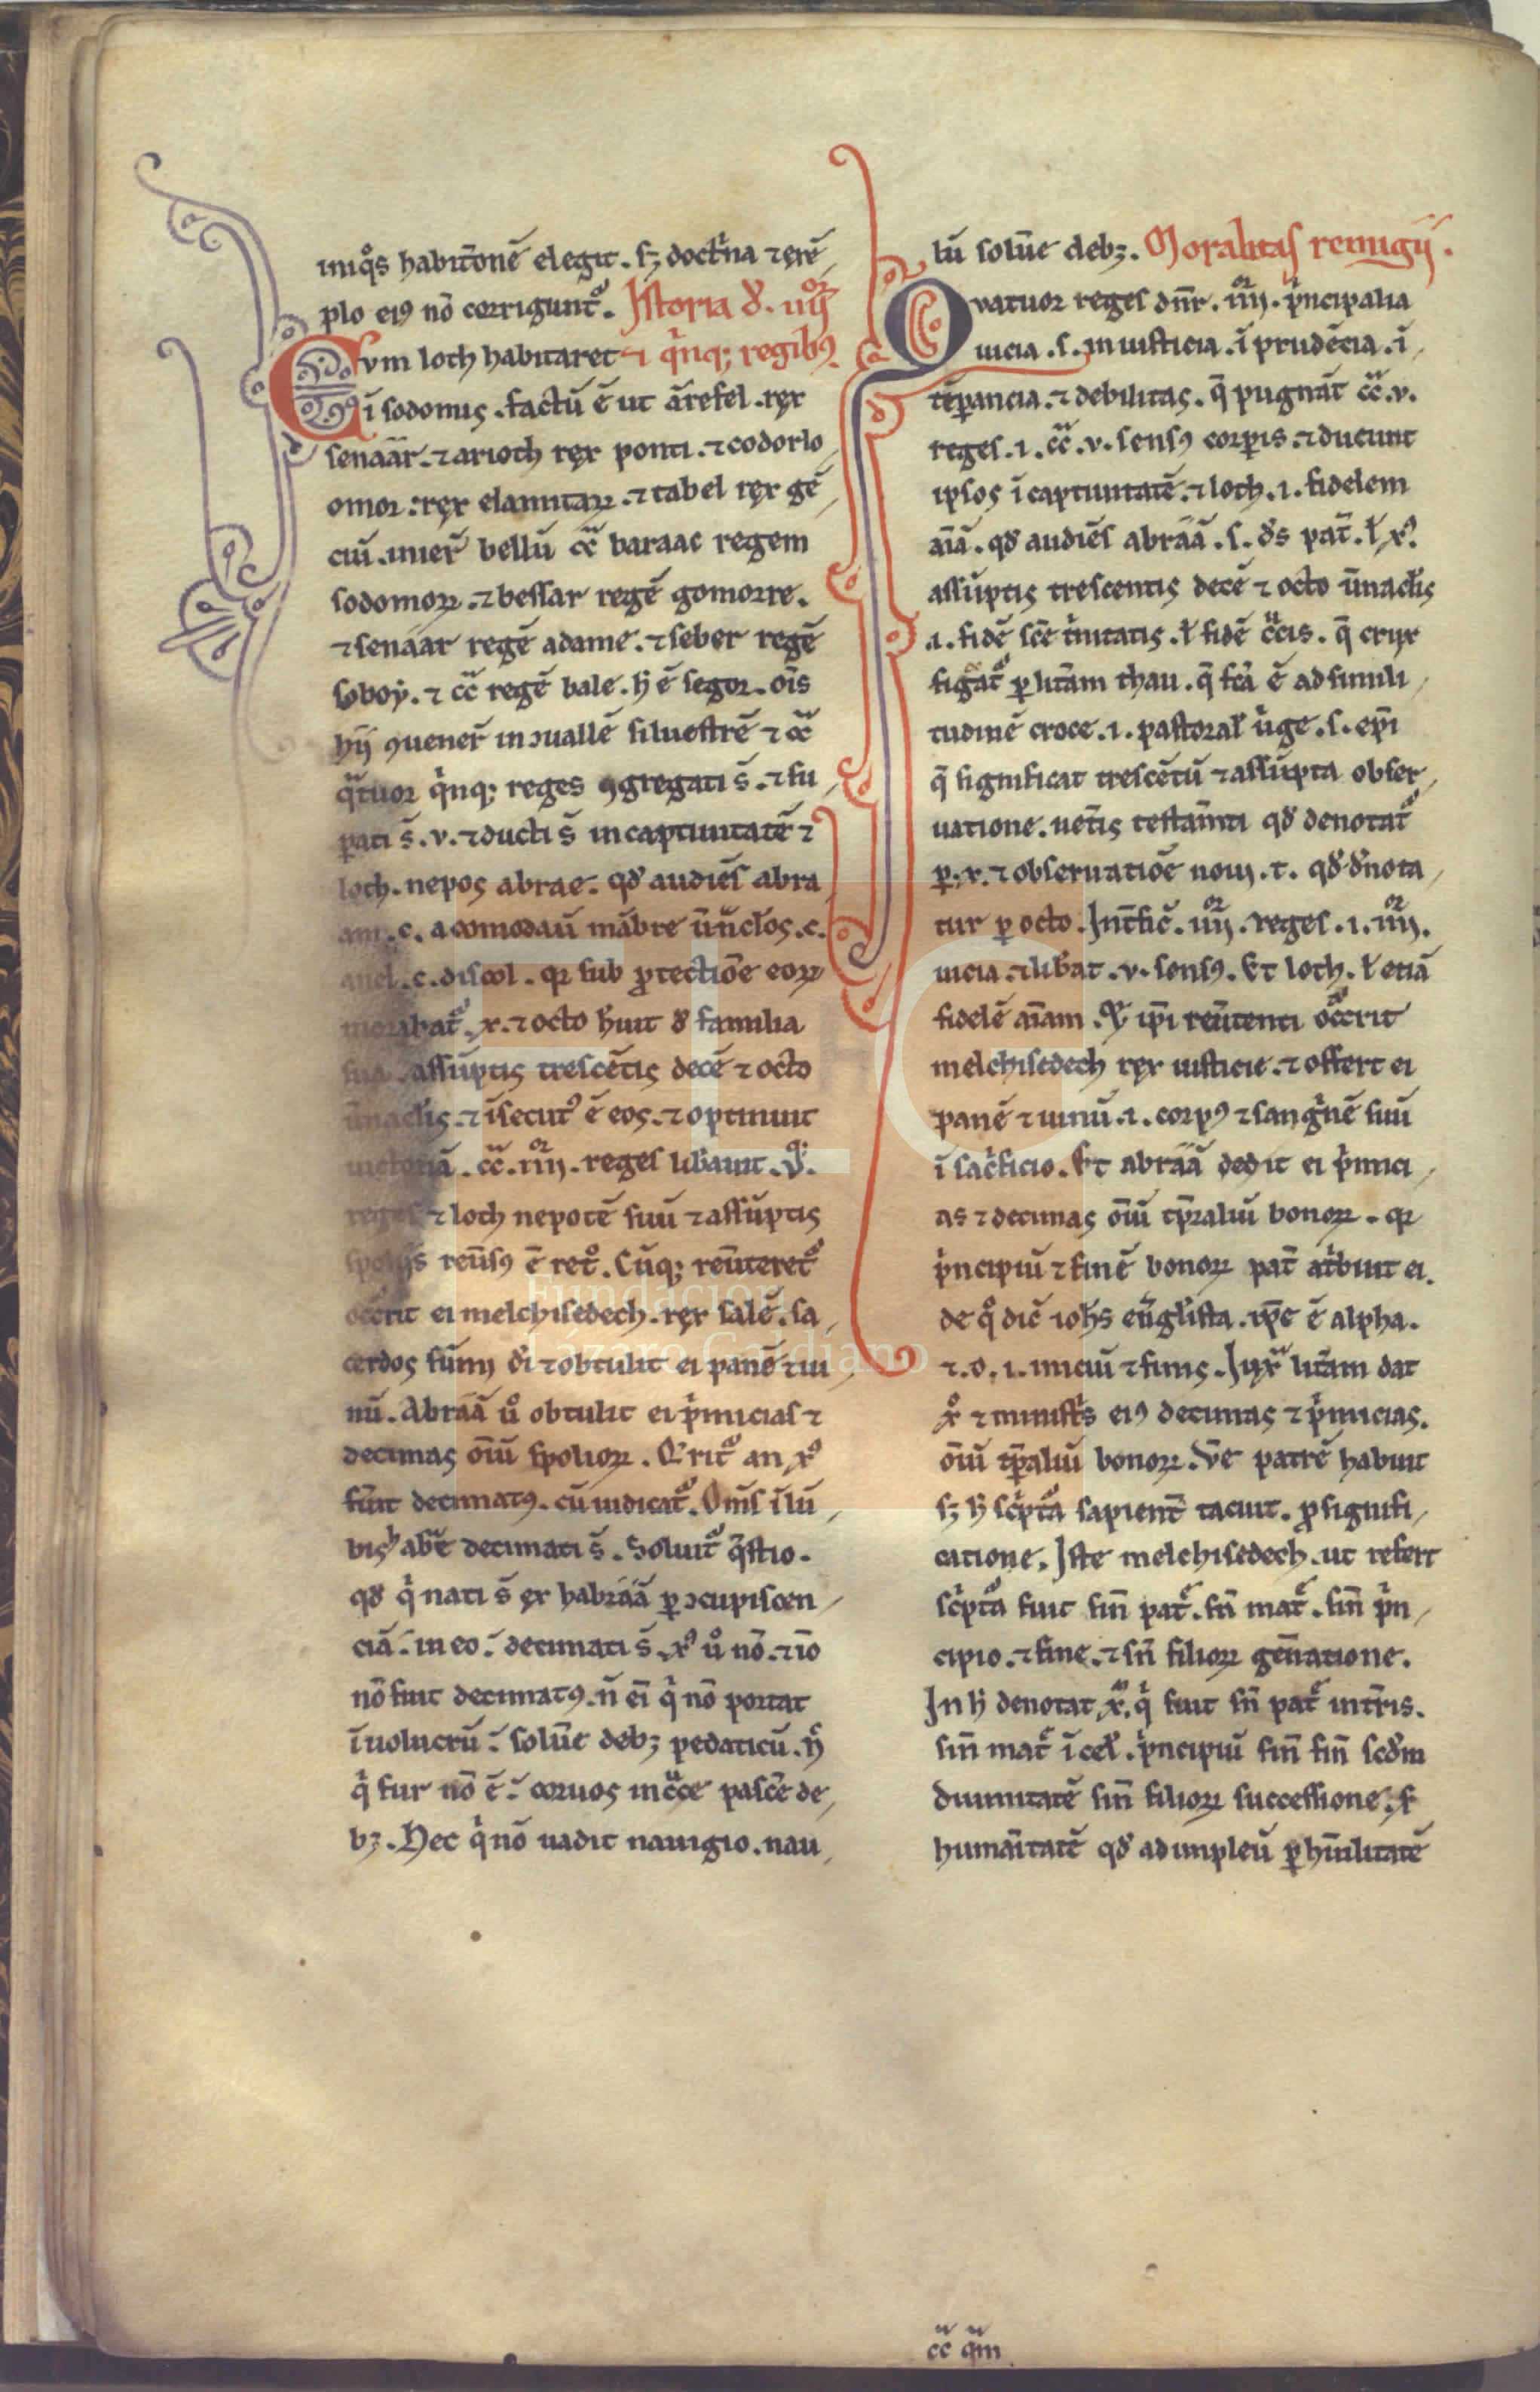 iniq̊s habitōnē elegit. sꝫ doct̍na ⁊ exē
plo ei⁹ nō corrigunt᷑. Jstoria ꝺ̾. iiijoꝝ
Cvm loth habitaret ⁊ q̍nqꝫ regibꝰ.
ī sodomis. factū ē ut ārefel. rex
senaär. ⁊ arioch rex ponti. ⁊ codorlo
omor. rex elamitaꝝ. ⁊ tabel rex gē
ciū. inier̄ bellū cͨc baraac regem
sodomoꝝ. ⁊ bessar regē gomorre.
⁊ senáár regē adame. ⁊ seber regē
soboẏ. ⁊ cͨc regē bale. h̄ ē segor. oīs
hij ꝯuener̄ in ꝯuallē siluestrē ⁊ cͨc
qͣtuor q̍nqꝫ reges ꝯgregati s̄. ⁊ su
ꝑati s̄. v. ⁊ ducti s̄ in captiuitatē ⁊
loth. nepos abrae. qd̾ audiēs abra
am. c. acomodaū mābre ūnclos. c.
anel. c. discol. qꝛ sub ꝓtectiōe eoꝝ
morabat᷑. x. ⁊ octo h̄uit ꝺ̾ familia
sua. assūptis trescētis decē ⁊ octo
ūnaclis. ⁊ īsecut⁹ ē eos. ⁊ optinuit
uictoriā. cͨc. iiijor. reges lib̄auit. v̊.
reges ⁊ loth nepotē suū ⁊ assūptis
spoliis reūsus ē ret̊. Cūqꝫ reūteret᷑
occ̄rit ei melchisedech. rex salē. sa
cerdos sūmi d̄i ⁊ obtulit ei panē ⁊ ui
nū. Abrāā ů obtulit ei p̍micias ⁊
decimas oīū spolioꝝ. Q̄rit᷑ an x̄⁹
fūit decimatus. cū iudicat᷑. Om̄s ī lū
bis abͤ decimati s̄. Soluit᷑ q̄stio.
qd̾ q̍ nati s̄ ex habrāā ꝑ ꝯcupiscen
ciā. in eo. decimati s̄. x̄⁹ ů nō. ⁊ iō
nō fuit decimatus. n̄ eī q̍ nō portat
īuolucrū. solūe debꝫ pedaticū. n̍
q̍ fur nō ē. coruos in cͬce pascē de
bꝫ. Nec q̍ nō uadit nauigio. nau
lū solūe debꝫ. Moralitas remigij.
Qvatuor reges dn̄r. iiijor. p̍ncipalia
uicia. s. in iusticia. ī prudēcia. ī
tēꝑancia. ⁊ debilitas. q̄ pugnāt cͨc. v.
reges. i. cͨc. v. sensꝰ corꝑis. ⁊ ducunt
ipsos ī captiuitatē. ⁊ loth. i. fidelem
aīā. qd̾ audiēs abrāā. s. d̄s pat̄. ł x̄⁹
assūptis trescentis decē ⁊ octo ūnaclis
.i. fidē sc̄e t̍nitatis. ł fidē cͬcis. q̄ crux
figat᷑ ꝑ litͣam thau. q̄ fcͣ ē ad simili
tudinē croce. i. pastoral̄ ůge. s. ep̄i
q̄ significat trescētū ⁊ assūpta obser
uatione. uet̄is testam̄ti qd̾ denotat᷑
ꝑ. x. ⁊ obseruatiōe noui. t. qd̾ d̾nota
tur ꝑ octo. Int̄fic̄. iiijor. reges. i. iiijor.
uicia. ⁊ lib̄at. v. sensꝰ. Et loth. ł etiā
fidelē aīam. Ꝙ ip̄i reūtenti occ̄rit
melchisedech rex iusticie. ⁊ offert ei
panē ⁊ uinū. i. corpꝰ ⁊ sanguinē suū
ī sac̍ficio. Et abrāā dedit ei p̍mici
as ⁊ decimas oīū tp̄raliū bonoꝝ. qꝛ
p̍ncipiū ⁊ finē bonoꝝ pat̄ at̍buit ei.
de q̊ dic̄ ioh̄s eūgl̄ista. ip̄e ē alpha.
⁊. o. i. iniciū ⁊ finis. Juxͣ litͣam dat
x̊ ⁊ minist̍s ei⁹ decimas ⁊ p̍micias.
oīū tp̄aliū bonoꝝ. Vn̄ patrē habuit
sꝫ h̄ sc̍ptͣ sapient̄ tacuit. ꝓ signifi
catione. Iste melchisedech. ut refert
sc̍ptͣ fuit sin̄ pat᷑. sn̄ mat᷑. sin̄ p̍n
cipio. ⁊ fine. ⁊ sn̄ filioꝝ gen̄atione.
In h̄ denotat x̄. q̍ fuit sn̄ pat᷑ in t̄ris.
sin̄ mat᷑ ī cel̄. p̍ncipiū sin̄ fin̄ scd̄m
diuinitatē sin̄ filioꝝ successione. s
humaītatē qd̾ ad impleū ꝑ hūilitatē
cͨc qͣm